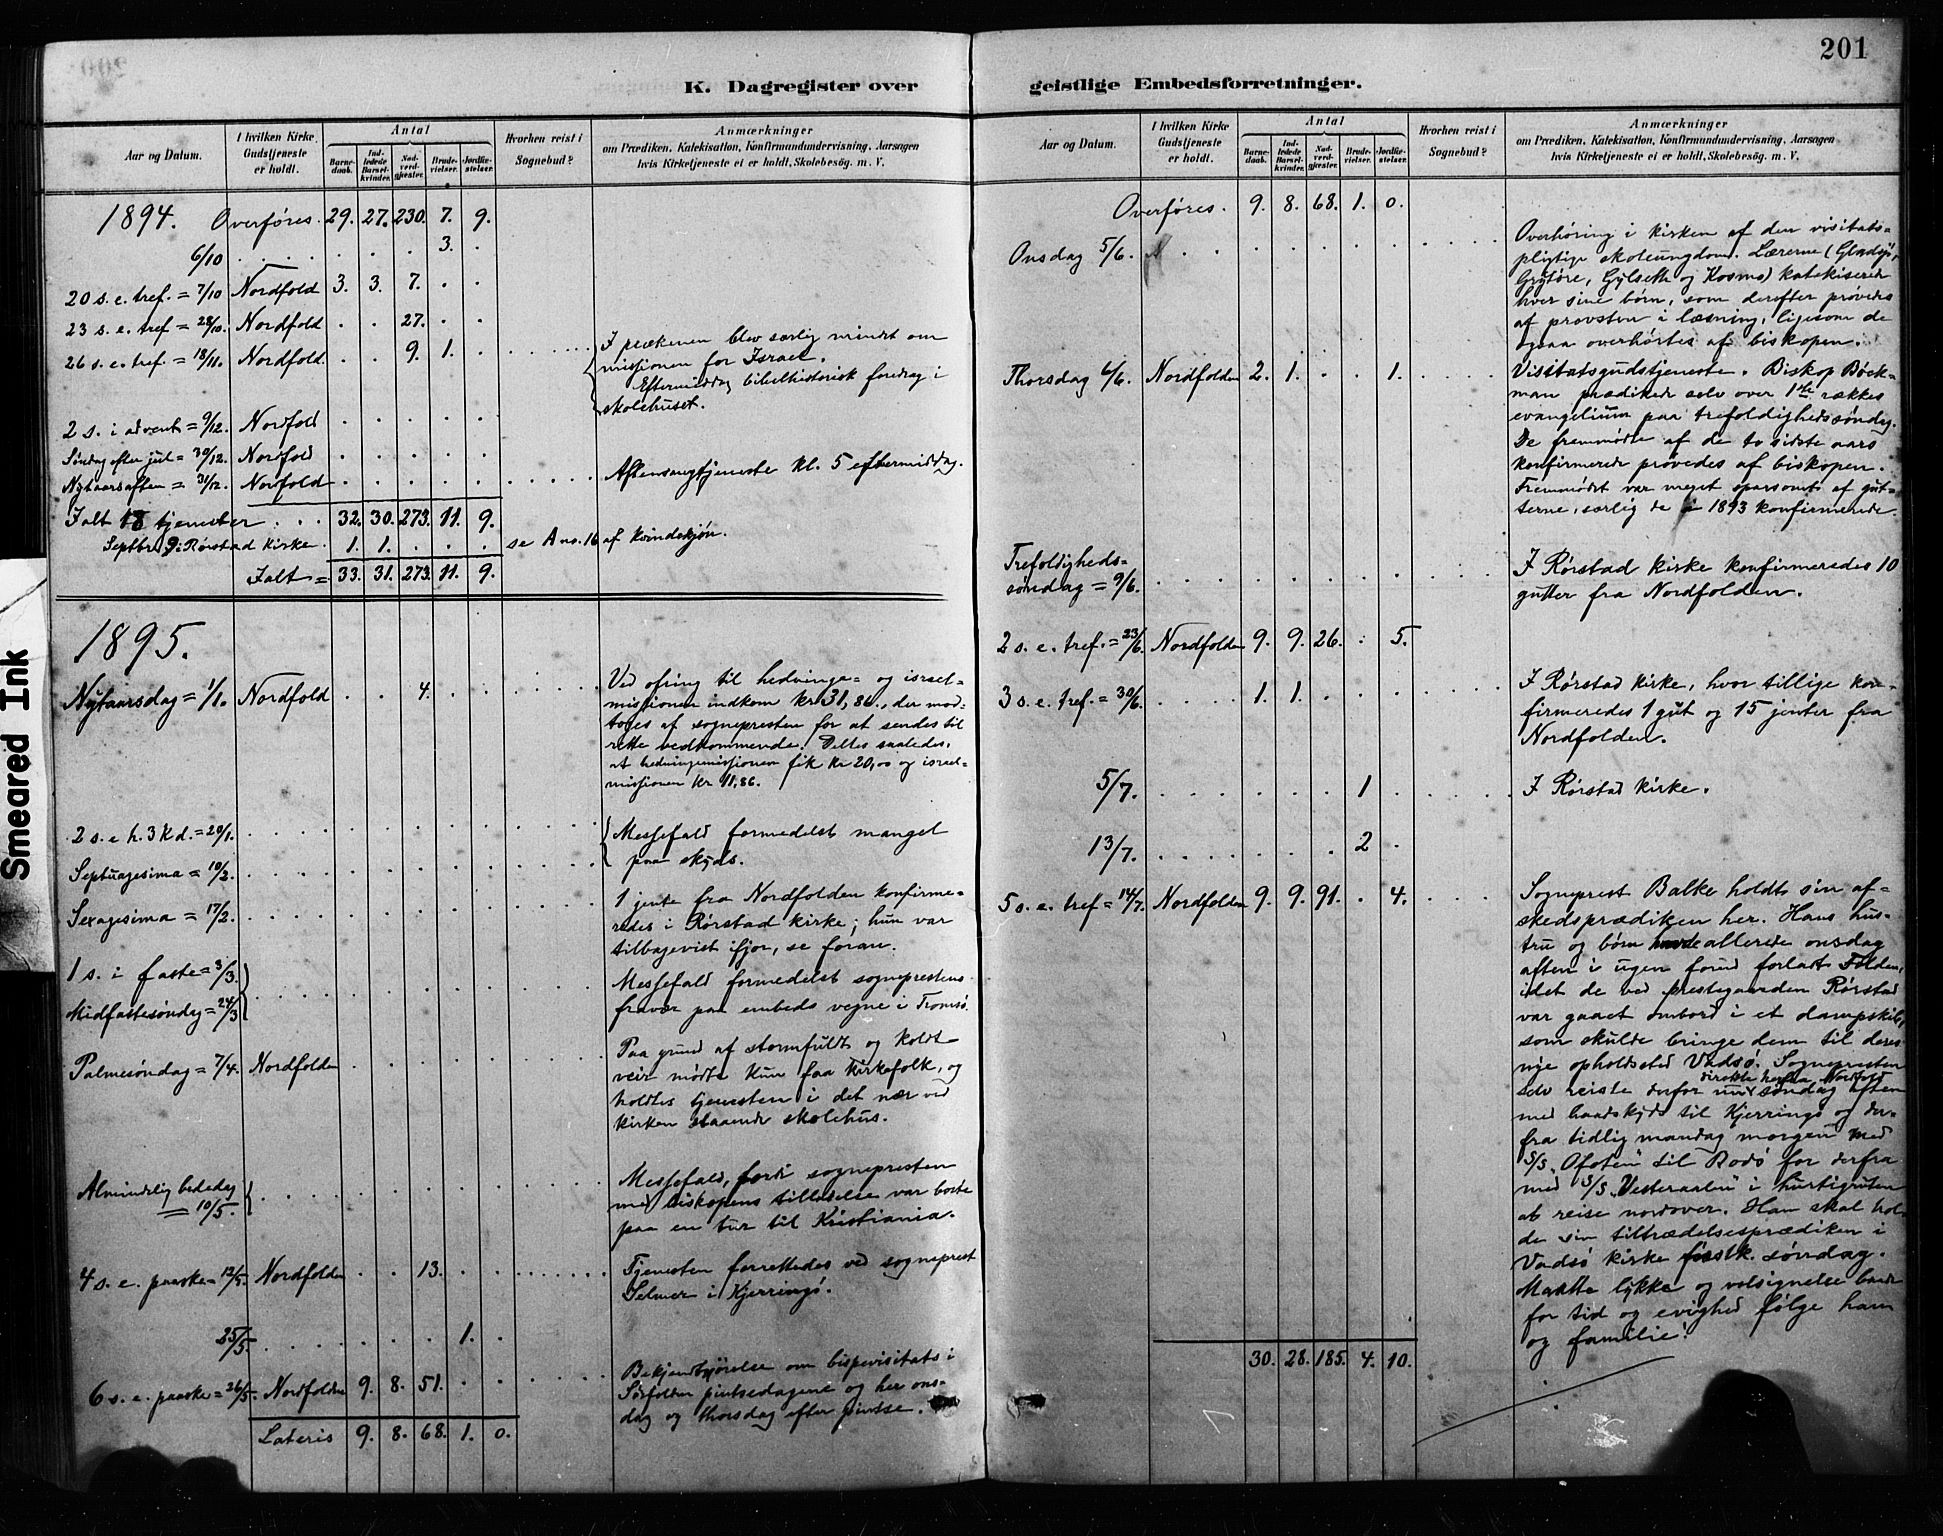 201
K. Dagregister over geistlige Embedsforretninger.
Aar og Datum.
I hvilken Kirke Gudstjeneste er holdt.
Antal
Barne-daab.
Ind-ledede Barsel-kvinder.
Nad-verd-gjester.
Brude-vielser.
Jordfæ-stelser.
Hvorhen reist i Sognebud?
Anmærkninger
om Prædiken, Katekisation, Konfirmandundervisning, Aarsagen
hvis Kirketjeneste ei er holdt, Skolebesøg. m. V.
1894. Overføres. 29. 27. 230. 7. 9.
6/10 3.
20 s. e. tref. = 7/10 Nordfold 3. 3. 7.
23 s. e. tref = 28/10. Nordfold 27.
26 s. e. tref. = 18/11. Nordfold. 9. 1.
I prækenen blev særlig mindet om
missionen for Israel.
Eftermiddag bibelhistorisk foredrag i
skolehuset.
2 s. i advent = 9/12. Nordfold
Søndag efter jul = 30/12. Nordfold
Nytaarsaften = 31/12. Nordfold Aftensangtjeneste kl. 5 eftermiddag.
Ialt 18 tjenester 32. 30. 273. 11. 9.
Septbr 9 i Rørstad kirke. 1. 1. se A no. 16 af kvindekjøn.
Ialt = 33. 31. 273. 11. 9.
1895.
Nytaarsdag = 1/1. Nordfold 4.
Ved ofring til hedninge= og israel=
missionen indkom kr 31,86., der mod=
toges af sognepresten for at sendes til
rette vedkommende. Deltes saaledes,
at hedningemissionen fik kr 20,00 og israel=
missionen kr 11,86.
2 s. e h. 3 k d. = 20/1.
Septuagesima = 10/2.
Messefald formedelst mangel
paa skyds.
Sexagesima = 17/2.
1 jente fra Nordfolden konfirme=
redes i Rørstad kirke; hun var
tilbagevist ifjor, se foran.
1 s. i faste = 3/3.
Midfastesøndag = 24/3
Messefald formedelst sogneprestens
fravær paa embeds vegne i Tromsø.
Palmesøndag = 7/4. Nordfolden
Paa grund af stormfuldt og koldt
veir mødte kun faa kirkefolk, og
holdtes tjenesten i det nær ved
kirken staaende skolehus.
Almindelig bededag
= 10/5.
Messefald, fordi sognepresten
med biskopens tilladelse var borte
paa en tur til Kristiania.
4 s. e. paaske = 12/5. Nordfolden 13.
Tjenesten forrettedes ved sogneprest
Selmer i Kjerringø.
25/5. 1.
6 s. e. paaske = 26/5. Nordfolden 9. 8. 51.
Bekjendtgjørelse om bispevisitats i
Sørfolden pintsedagene og her ons=
dag og thorsdag efter pintse.
Lateris 9. 8. 68. 1. 0.
Aar og Datum.
I hvilken Kirke Gudstjeneste er holdt.
Antal
Barne-daab.
Ind-ledede Barsel-kvinder.
Nad-verd-gjester.
Brude-vielser.
Jordfæ-stelser.
Hvorhen reist i Sognebud?
Anmærkninger
om Prædiken, Katekisation, Konfirmandundervisning, Aarsagen
hvis Kirketjeneste ei er holdt, Skolebesøg. m. V.
Overføres. 9. 8. 68. 1. 0.
Onsdag 5/6.
Overhøring i kirken af den visitats=
pligtige skoleungdom. Lærerne (Gladsjø,
Grytøre, Gylseth og Kosmo) katekiserede
hver sine børn, som derefter prøvedes
af provsten i læsning, ligesom de
ogsaa overhørtes af biskopen.
Thorsdag 6/6. Nordfolden 2. 1. 1.
Visitatsgudstjeneste. Biskop Bøck=
man prædikede selv over 1ste rækkes
evangelium paa trefoldighedssøndag.
De fremmødte af de to sidste aars
konfirmerede prøvedes af biskopen.
Fremmødet var meget sparsomt af gut=
terne, særlig de i 1893 konfirmerede.
Trefoldigheds=
søndag = 9/6.
I Rørstad kirke konfirmeredes 10
gutter fra Nordfolden.
2 s. e. tref. = 23/6. Nordfolden 9. 9. 26. 5.
3 s. e. tref. = 30/6. 1. 1.
I Rørstad kirke, hvor tillige kon=
firmeredes 1 gut og 15 jenter fra
Nordfolden.
5/7. 1 I Rørstad kirke.
13/7. 2
5 s. e. tref = 14/7. Nordfolden 9. 9. 91. 4.
Sogneprest Balke holdt sin af=
skedsprædiken her. Hans hus=
tru og børn havde allerede onsdag
aften i ugen forud forladt Folden,
idet de ved prestegaarden Rørstad
var gaaet ombord i et dampskib,
som skulde bringe dem til deres
nye opholdssted Vadsø. Sognepresten
direkte herfra Nordfold
selv reiste derfor nu søndag aften
med baadskyds til Kjerringø og der=
fra tidlig mandag morgen med
S/S „Ofoten“ til Bodø for derfra
med S/S „Vesteraalen“ i hurtigruten
at reise nordover. Han skal hol=
de sin tiltrædelsesprædiken i
Vadsø kirke førstk. søndag.
Maatte lykke og velsignelse baade
for tid og evighed følge ham
og familie!
30. 28. 185. 4. 10.
Smeared Ink